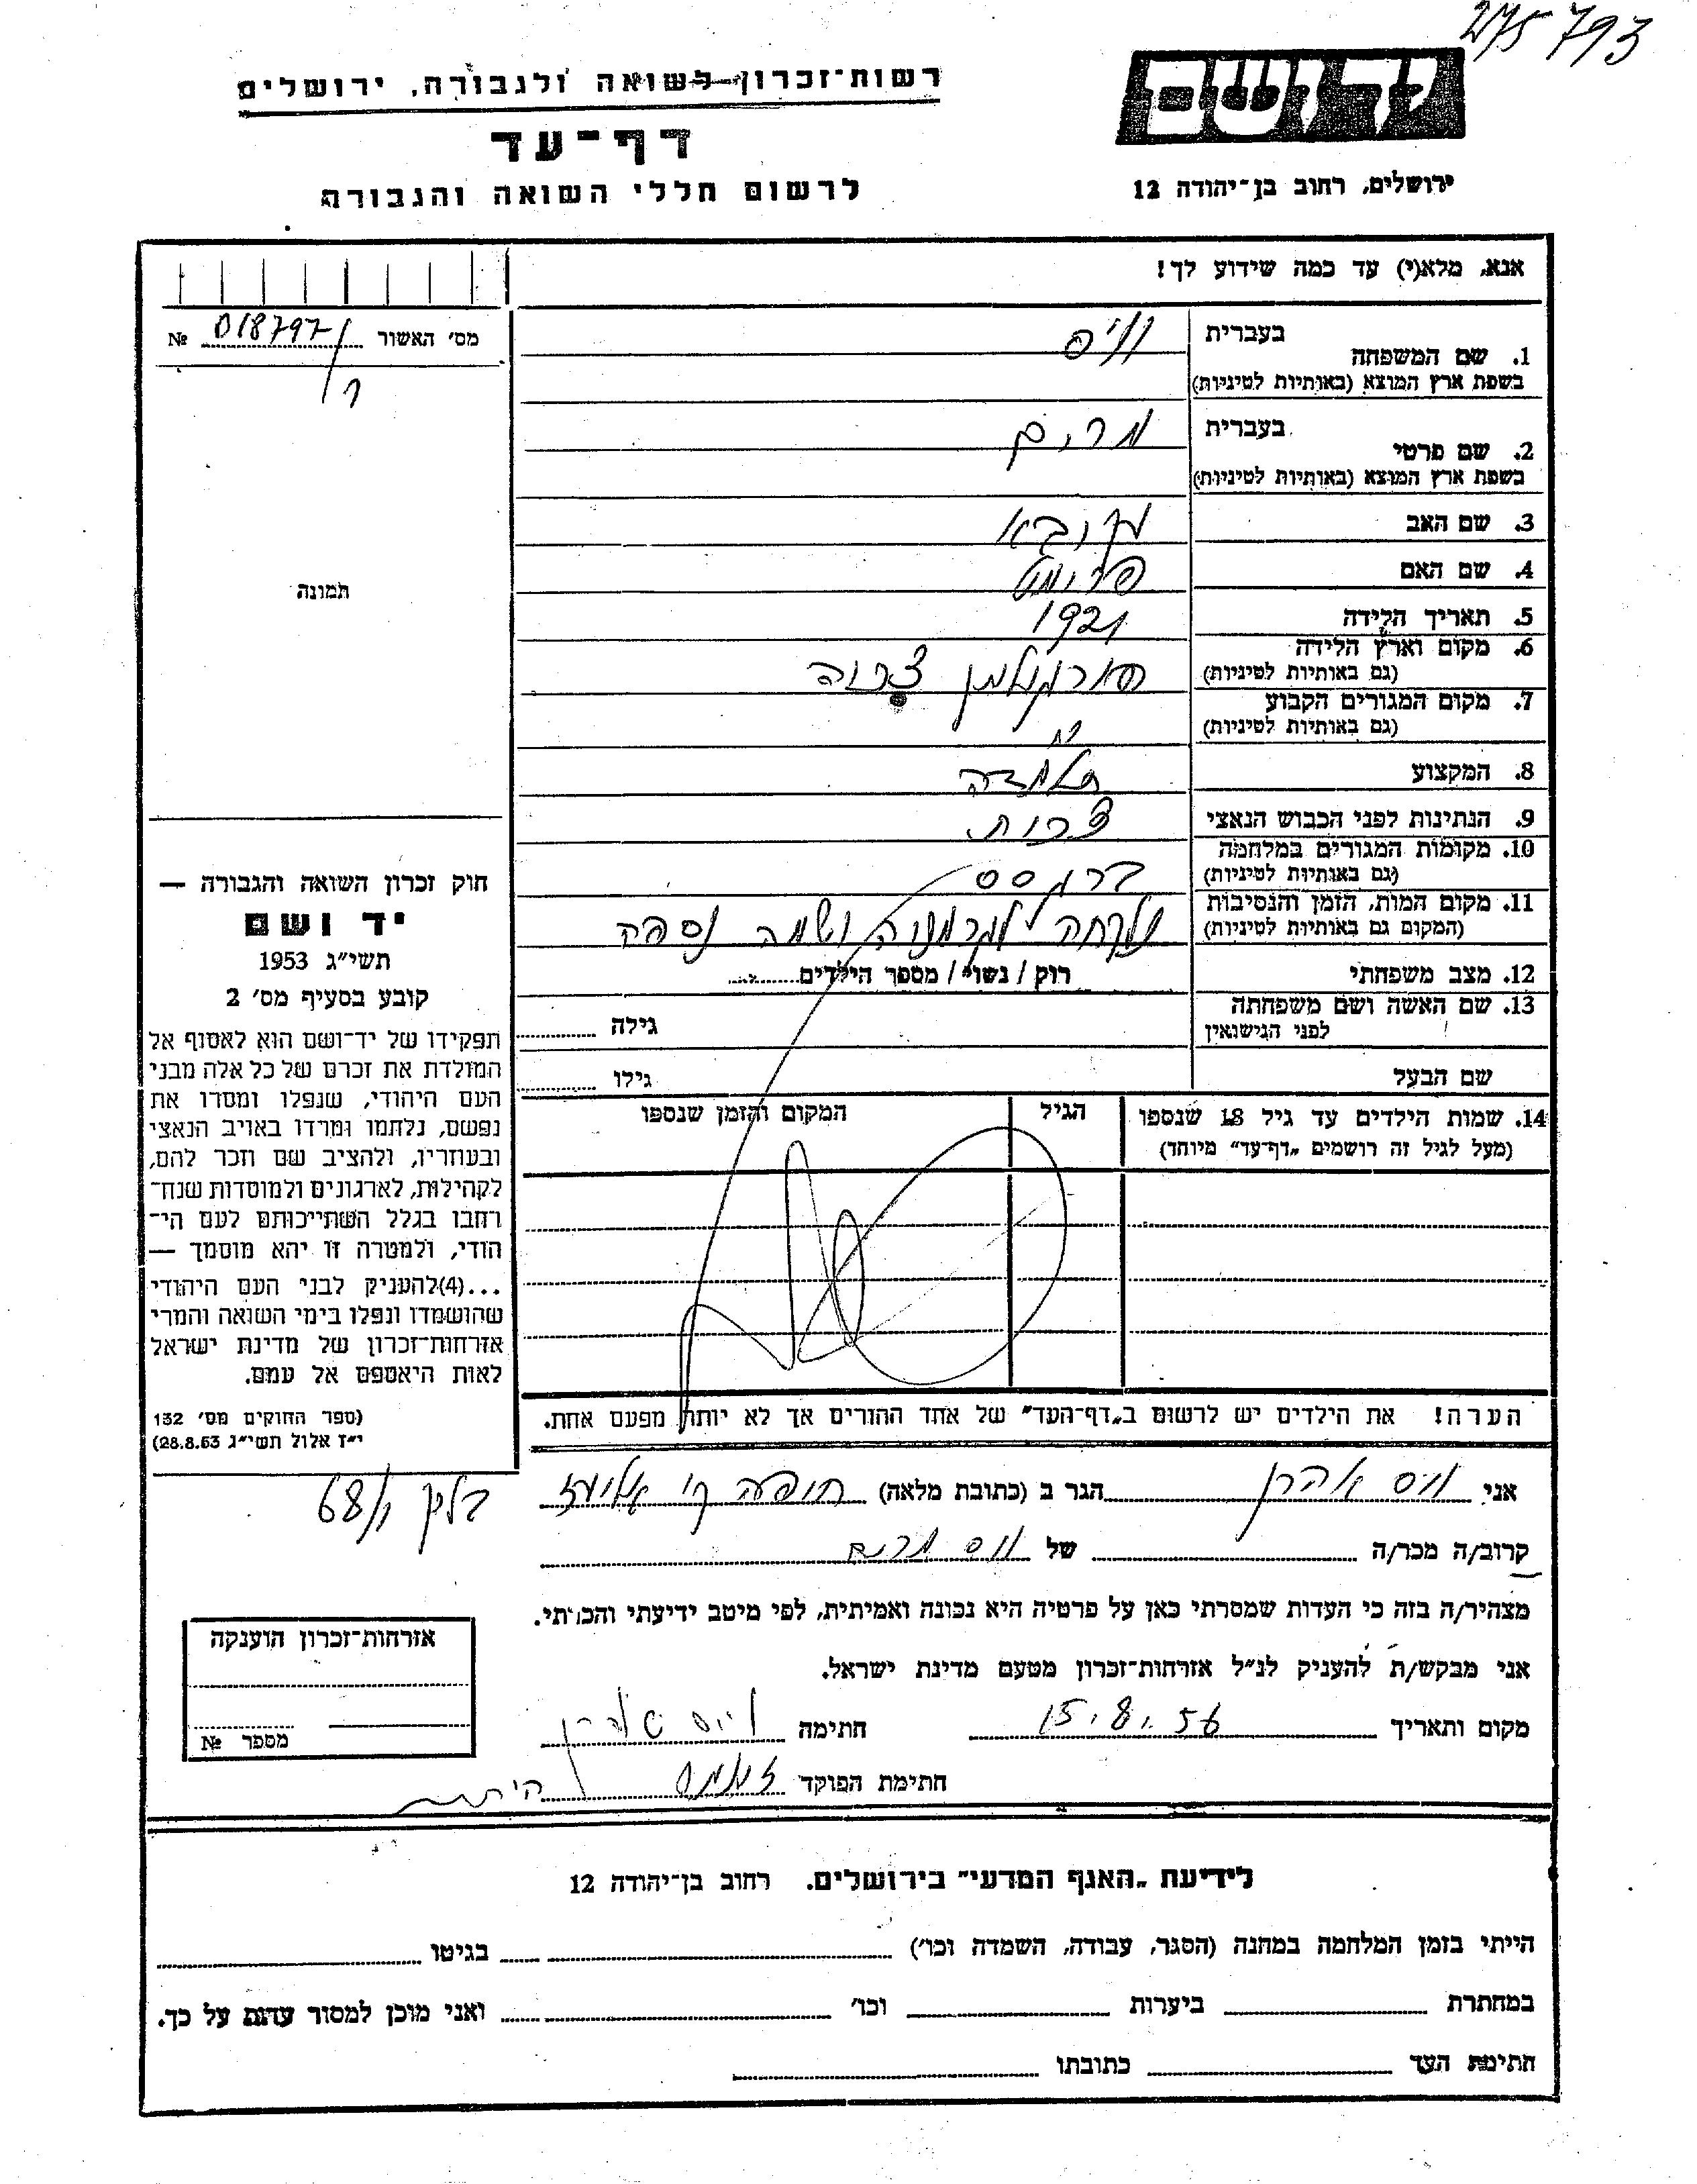 275793
יד ושם
ירושלים, רחוב בן־יהודה 12
רשות־זכרון לשואה ולגבורה, ירושלים
דף־עד
לרשום חללי השואה והגבורה
אנא, מלא(י) עד כמה שידוע לך!
מס׳ האשור 018797 №
1. שם המשפחה בעברית
בשפת ארץ המוצא (באותיות לטיניות)
2. שם פרטי בעברית מרים
בשפת ארץ המוצא (באותיות לטיניות)
3. שם האב
4. שם האם
5. תאריך הלידה 1921
6. מקום וארץ הלידה
(גם באותיות לטיניות)
7. מקום המגורים הקבוע
(גם באותיות לטיניות)
8. המקצוע תלמידה
9. הנתינות לפני הכבוש הנאצי
10. מקומות המגורים במלחמה
(גם באותיות לטיניות)
11. מקום המות, הזמן והנסיבות נלקחה לגרמניה ושמה נספה
(המקום גם באותיות לטיניות)
12. מצב משפחתי רוק / נשוי / מספר הילדים
13. שם האשה ושם משפחתה
לפני הנישואין גילה
שם הבעל גילו
14. שמות הילדים עד גיל 18 שנספו הגיל המקום והזמן שנספו
(מעל לגיל זה רושמים „דף־עד” מיוחד)
הערה! את הילדים יש לרשום ב„דף־העד” של אחד ההורים אך לא יותר מפעם אחת.
תמונה
חוק זכרון השואה והגבורה —
יד ושם
תשי״ג 1953
קובע בסעיף מס׳ 2
תפקידו של יד־ושם הוא לאסוף אל
המולדת את זכרם של כל אלה מבני
העם היהודי, שנפלו ומסרו את
נפשם, נלחמו ומרדו באויב הנאצי
ובעוזריו, ולהציב שם וזכר להם,
לקהילות, לארגונים ולמוסדות שנח־
רחבו בגלל השתייכותם לעם הי־
הודי, ולמטרה זו יהא מוסמך —
...(4)להעניק לבני העם היהודי
שהושמדו ונפלו בימי השואה והמרי
אזרחות־זכרון של מדינת ישראל
לאות היאספם אל עמם.
(ספר החוקים מס׳ 132
י״ז אלול תשי״ג 28.8.53)
אני וייס אהרן הגר ב (כתובת מלאה) חיפה
קרוב/ה מכר/ה של וייס מרים
מצהיר/ה בזה כי העדות שמסרתי כאן על פרטיה היא נכונה ואמיתית, לפי מיטב ידיעתי והכרתי.
אני מבקש/ת להעניק לנ״ל אזרחות־זכרון מטעם מדינת ישראל.
מקום ותאריך 15.8.56 חתימה
חתימת הפוקד
אזרחות־זכרון הוענקה
מספר №
לידיעת „האגף המדעי” בירושלים. רחוב בן־יהודה 12
הייתי בזמן המלחמה במחנה (הסגר, עבודה, השמדה וכו׳) בגיטו
במחתרת ביערות וכו׳ ואני מוכן למסור עדות על כך.
חתימת העד כתובתו